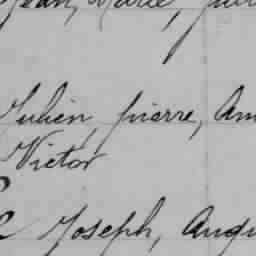 Jean, Marie,
Julien, pierre, Am
Victor
Joseph, Augu